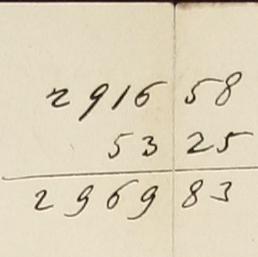 2916 58
53 25
2969 83